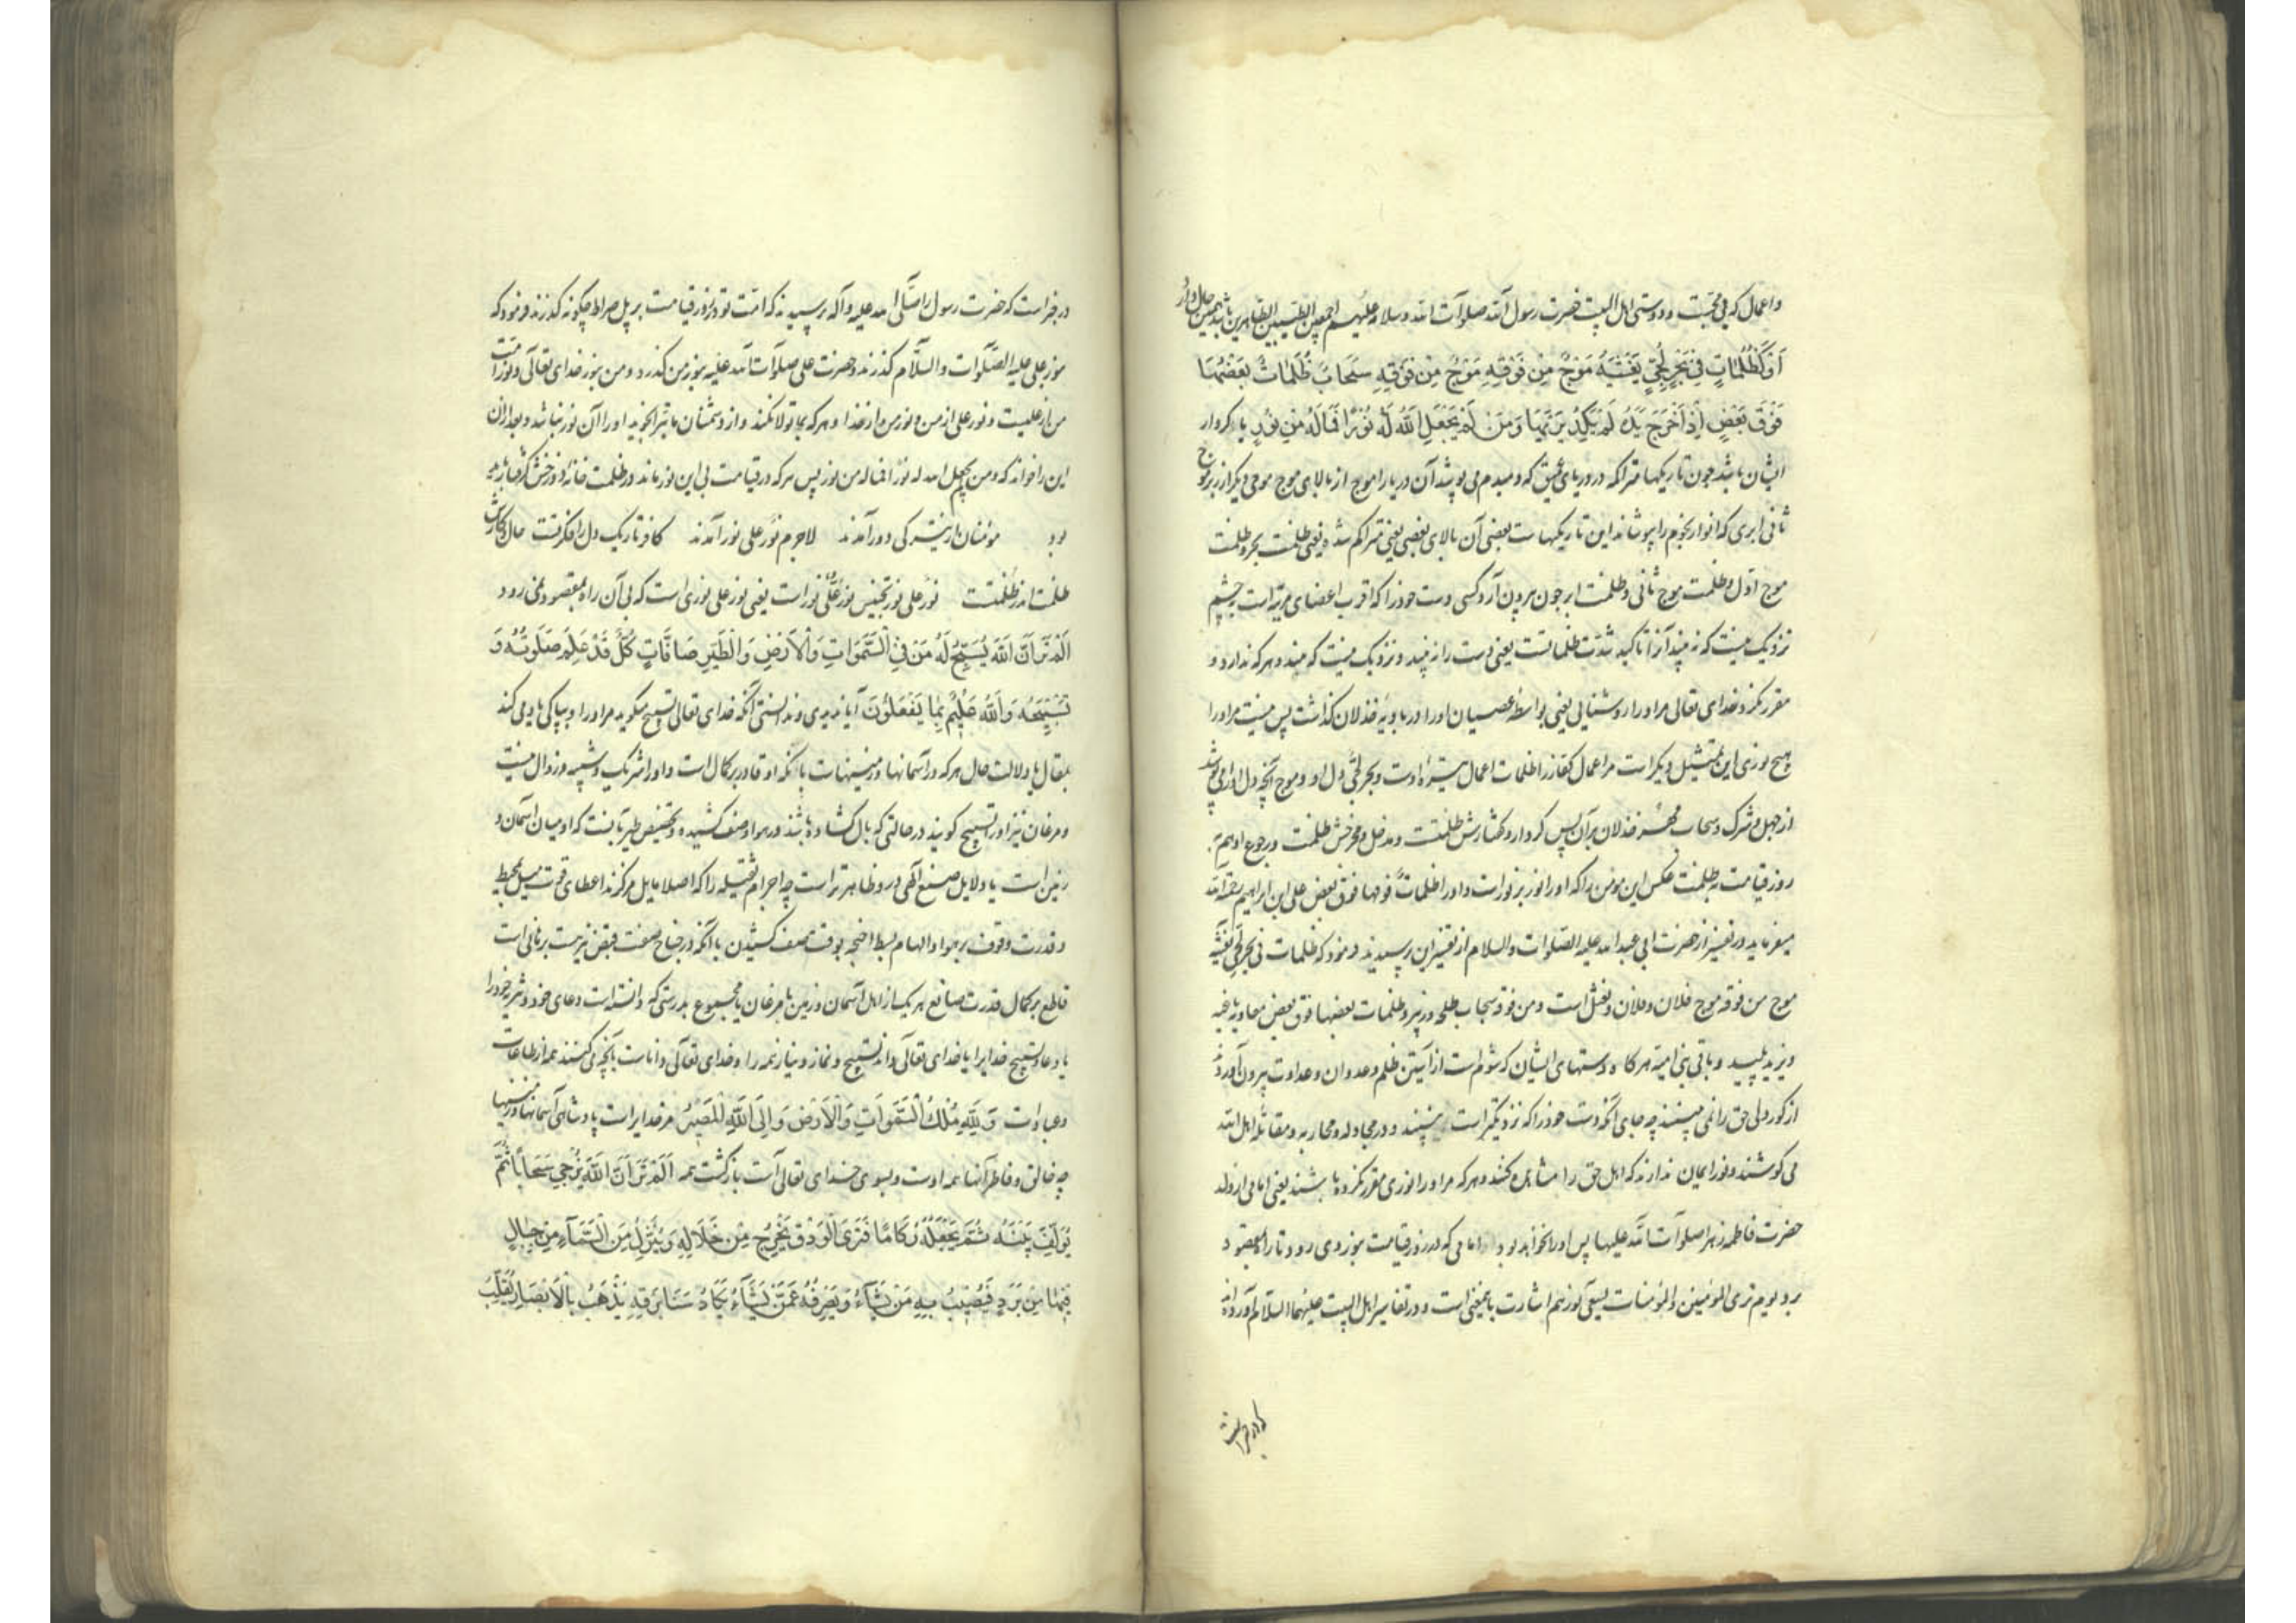 واعمال که بی محبت و دوستی اهل البیت حضرت رسول الله صلوات الله وسلامه علیهم اجمعین الطیبین الطاهرین باشد همین حال دارد
اَوْ كَظُلُمَاتٍ فِي بَحْرٍ لُجِّيٍّ يَغْشَيهُ مَوْجٌ مِنْ فَوْقِهِ مَوْجٌ مِنْ فَوْقِهِ سَحَابٌ ظُلُمَاتٌ بَعْضُهَا
فَوْقَ بَعْضٍ اِذَا خَرَجَ يَدَهُ لَمْ يَكَدْ يَرَيهَا وَمَنْ لَمْ يَجْعَلِ اللّٰهُ لَهُ نُورًا فَمَا لَهُ مِنْ نُورٍ یا کردار
ایشان باشد چون تاریکیها متراکه در دریای عمیق که دمبدم می پوشد آن دریا را موج از بالای موج موجی دیگر از زبر موج
ثانی ابری که انوار نجوم را بپوشاند این تاریکیهاست بعضی آن بالای بعضی یعنی متراکم شده یعنی ظلمت بحر و ظلمت
موج اول و ظلمت موج ثانی و ظلمت ابر چون بیرون آرد کسی دست خود را که اقرب اعضای مرئیه است بچشم
نزدیک نیست که به بیند آنرا تاکید شدت ظلماتست یعنی دست را نه بیند و نزدیک نیست که بیند و هرکه ندارد و
مقرر نکرد خدای تعالی مر اورا روشنایی یعنی بواسطه عصیان اورا در بادیه خذلان گذاشت پس نیست مر اورا
هیچ نوری این تمثیل دیگر است مر اعمال کفار را ظلمات اعمال تیره اوست و بحر لجی دل او و موج آنچه دل اورا می پوشد
از جهل و شرک و سحاب مهر خذلان بر آن پس کردار و گفتارش ظلمتست و مدخل و مخرجش ظلمت و رجوع او هم
روز قیامت به ظلمت عکس این مومن را که اورا نور بر نور است و اورا ظلمات فوقها فوق بعض علی ابن ابراهیم رحمه الله
میفرماید در تفسیر از حضرت ابی عبد الله علیه الصلوات والسلام از تفسیر این پرسیدند فرمود که ظلمات فی بحر لجی یغشیه
موج من فوقه موج فلان و فلان و نعثل است و من فوقه سحاب طلحه و زبیر و ظلمات بعضها فوق بعض معاویه
و یزید پلید و باقی بنی امیه هرگاه دستهای ایشان که شوم است از آستین ظلم و عدوان و عداوت بیرون آورد
از کور دلی حق را نمی بینند چه جای آنکه دست خود را که نزدیکتر است بینند و در مجادله و محاربه و مقاتله اهل الله
می کوشند و نور ایمان ندارند که اهل حق را مشاهده کنند و هرکه مر اورا نوری مقرر نکرده باشند یعنی امامی از ولد
حضرت فاطمه زهرا صلوات الله علیها پس اورا نخواهد بود امامی که در روز قیامت بنور وی رود تا راه مقصود
برد و یوم تری المومنین والمومنات یسعی نورهم اشارت باین معنی است و در تفاسیر اهل البیت علیهما السلام آورده اند
در خبر است که حضرت رسول را صلی الله علیه وآله پرسیدند که امت تو در روز قیامت بر پل صراط چگونه گذرند فرمود که
بنور علی علیه الصلوات والسلام گذرند و حضرت علی صلوات الله علیه بنور من گذرد و من بنور خدای تعالی و نور امت
من از علیست و نور علی از من و نور من از خدا و هرکه بما تولا نکند و از دشمنان ما تبرا نجوید اورا آن نور نباشد و بعد از آن
این را خواند که ومن لم یجعل الله له نورا فما له من نور پس هرکه در قیامت بی این نور ماند در ظلمت خانه دوزخش گرفتار
بود مؤمنان از تیرگی دور آمدند لاجرم نور علی نور آمدند کافر تاریک دل را فکرتست حال کارش
ظلمت اندر ظلمتست نور علی نور تجنیس نور علی نور است یعنی نور علی نوری است که بی آن راه بمقصود نمی رود
اَلَمْ تَرَ اَنَّ اللّٰهَ يُسَبِّحُ لَهُ مَنْ فِي السَّمٰوَاتِ وَالْاَرْضِ وَالطَّيْرُ صَافَّاتٍ كُلٌّ قَدْ عَلِمَ صَلٰوتَهُ وَ
تَسْبِيحَهُ وَاللّٰهُ عَلِيمٌ بِمَا يَفْعَلُونَ آیا ندیدی و ندانستی آنکه خدای تعالی تسبیح میگوید مر اورا و بپاکی یاد می کند
بمقال یا دلالت حال هرکه در آسمانها و زمینهاست بآنکه او قادر بر کمال است و اورا شریک و شبیه و زوال نیست
و مرغان نیز اورا تسبیح گویند در حالتی که بال گشاده باشند در هوا و صف کشیده و تخصیص طیر بآنست که او میان آسمان و
زمین است یا دلایل صنع الهی در و ظاهرتر است چه اجرام ثقیله را که اصلا مایل مرکزند اعطای قوت میل محیط
و قدرت وقوف بر هوا و الهام بسط اجنحه بوقت صف کشیدن با آنکه در جناح صفت قبض نیز هست برهانی است
قاطع بر کمال قدرت صانع هریک از اهل آسمان و زمین یا مرغان یا مجموع بدرستی که دانسته است دعای خود و تنزیه خود را
یا دعا و تسبیح خدایرا یا خدای تعالی داند تسبیح و نماز و نیاز همه را و خدای تعالی داناست بآنچه می کنند همه از طاعات
و عبادات وَلِلّٰهِ مُلْكُ السَّمٰوَاتِ وَالْاَرْضِ وَاِلَى اللّٰهِ الْمَصِيرُ مر خدایراست پادشاهی آسمانها و زمینها
چه خالق و فاطر آنها همه اوست و بسوی خدای تعالی است بازگشت همه اَلَمْ تَرَ اَنَّ اللّٰهَ يُزْجِي سَحَابًا ثُمَّ
يُؤَلِّفُ بَيْنَهُ ثُمَّ يَجْعَلُهُ رُكَامًا فَتَرَى الْوَدْقَ يَخْرُجُ مِنْ خِلَالِهِ وَيُنَزِّلُ مِنَ السَّمَآءِ مِنْ جِبَالٍ
فِيهَا مِنْ بَرَدٍ فَيُصِيبُ بِهِ مَنْ يَشَآءُ وَيَصْرِفُهُ عَمَّنْ يَشَآءُ يَكَادُ سَنَا بَرْقِهِ يَذْهَبُ بِالْاَبْصَارِ يُقَلِّبُ